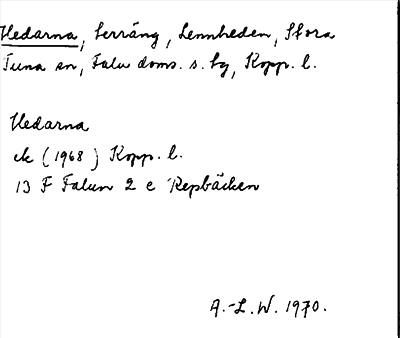 Hedarna, terräng, Lennheden, Stora
Tuna sn, Falu doms. s. bg, Kopp. l.
Hedarna
ek (1968) Kopp. l.
13 F Falun 2 c Repbäcken
A.-L. W. 1970.